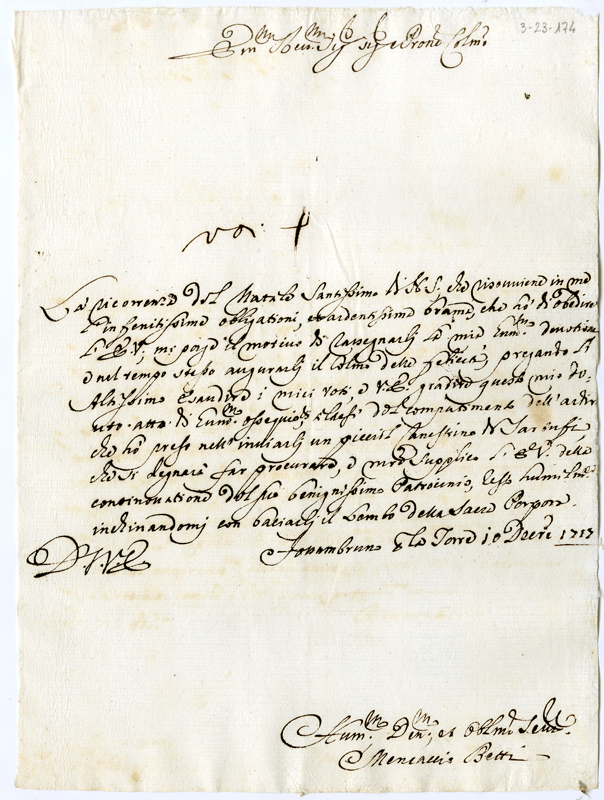 3-23-174
Em.mo Rev.mo Sig.r Sig.r e Pron.e Col.mo
La ricorrenza del Natale Santissimo di N. S. che risovviene in me
l'infinitissime obbligationi, et ardentissime brame, che hò di obedire
l'E. V., mi porge il motivo di rassegnarli la mia hum.ma devotione
e nel tempo stesso augurarli il colmo delle felicità, pregando l'
Altissimo esaudire i miei voti, e V. E. gradire questo mio do-
vuto atto di hum.mo ossequio, del compatimento dell'ardire
che hò preso nell'inviarli un picciol canestrino di
che si degnarà far procurare, e mentre supplico l'E. V. della
continovatione del suo benignissimo Patrocinio, resto humilm.e
inchinandomi con baciarli il Lembo della Sacra Porpora.
D. V. E.
la Torre 10 Decre 1717
Hum.mo Dev.mo et Obbl.mo Serv.re
Mencaccio Betti